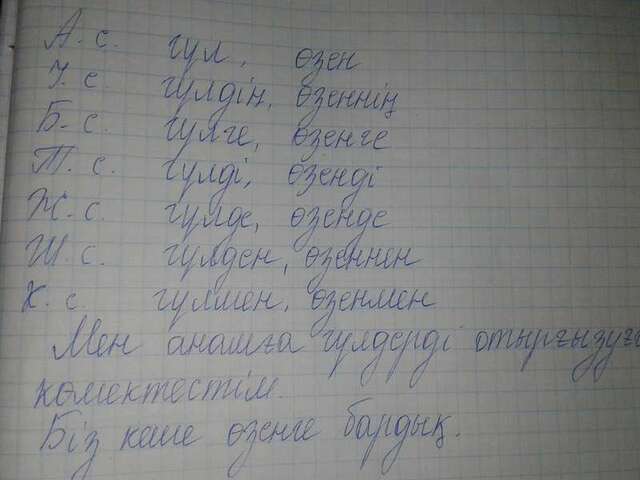 А. с. гүл, өзен
І. с. гүлдің, өзеннің
Б. с. гүлге, өзенге
Т. с. гүлді, өзенді
Ж. с. гүлде, өзенде
Ш. с. гүлден, өзеннен
К. с. гүлмен, өзенмен
Мен анашға гүлдерді отырғызуға
көмектестім.
Біз кеше өзенге бардық.